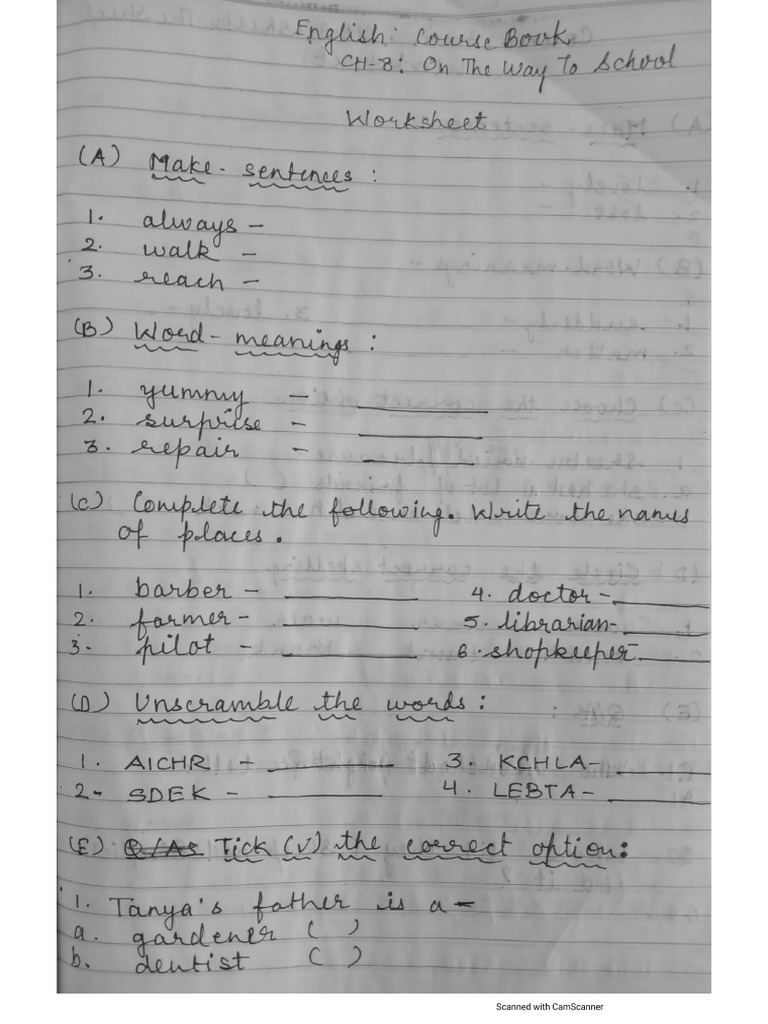 English: Course Book
CH-8: On The Way To School
Worksheet
(A) Make-sentences:
1. always -
2. walk -
3. reach -
(B) Word-meanings:
1. yummy - ______
2. surprise - ______
3. repair - ______
(C) Complete the following. Write the names
of places.
1. barber - ______ 4. doctor - ______
2. farmer - ______ 5. librarian - ______
3. pilot - ______ 6. shopkeeper ______
(D) Unscramble the words:
1. AICHR - ______ 3. KCHLA - ______
2- SDEK - ______ 4. LEBTA - ______
(E) Q/As Tick (√) the correct option:
1. Tanya's father is a-
a. gardener ( )
b. dentist ( )
Scanned with CamScanner